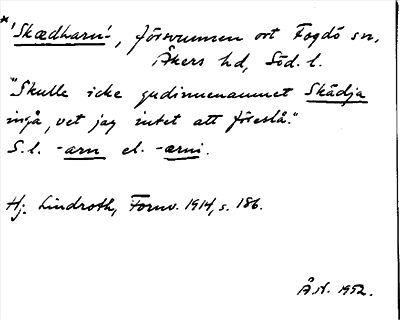 *'Skædharn'-, försvunnen ort Fogdö sn,
Åkers hd, Söd. l.
"Skulle icke gudinnenamnet Skädja
ingå, vet jag intet att föreslå."
S. l. -arn el. -ærni.
Hj. Lindroth, Fornv. 1914, s. 186.
Å.N. 1952.